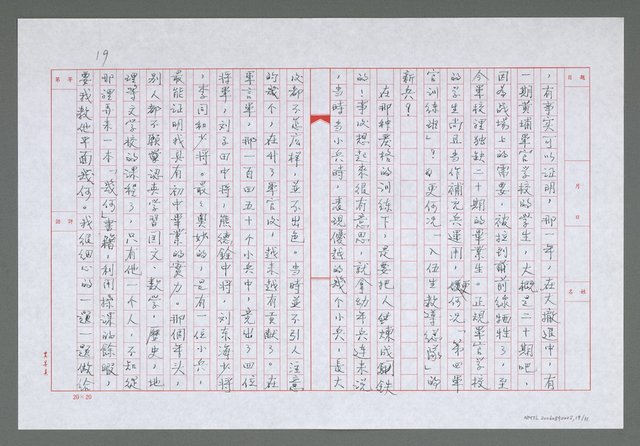 19
題目
月
日
姓名
，有事實可以証明，那一年，在大撤退中，有
一期黃埔軍官學校的學生，大概是二十期吧，
因為戰場上的需要，被拉到前線犧牲了，至
今軍校裡獨缺二十期的畢業生。正規軍官學校
的學生尚且當作補充兵運用，何況「第四軍
官訓練班」？更何況入伍生教導總隊的
新兵！
在那種嚴格的訓練下，是要把人鍛煉成鋼鐵
的！事後想起來很有意思，就拿幼年兵連來說
，當時當小兵時，表現優越的幾個小兵，長大
後都不怎麼樣，並不出色。當時並不引人注意
的幾個，在升了軍官後，越來越有貢獻了。在
軍官中，那一百四五十個小兵中，竟出了四位
將軍，劉子田中將，熊德銓中將，劉东海少將
，李同和少將。最奧妙的，是有一位小兵，
最能証明我具有初中畢業的實力。那個年头，
別人都不願意認真學習国文、数学，歷史，地
理等文学校的課程了，只有他一个人，不知從
那裡弄來一本「幾何」書籍，利用操課的餘暇，
要我教他平面幾何。我很細心的一題一題做給
等第
評語
20×20